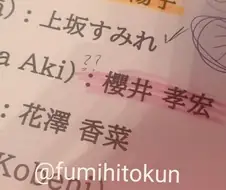 ) : 上坂すみれ ✓
??
a Aki) : 櫻井 孝宏
: 花澤 香菜
Kobeni)
@fumihitokun